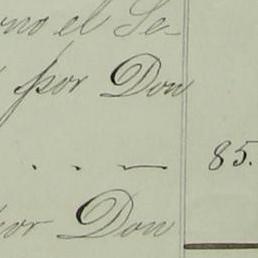 rno el Se-
por Don
85.
por Don